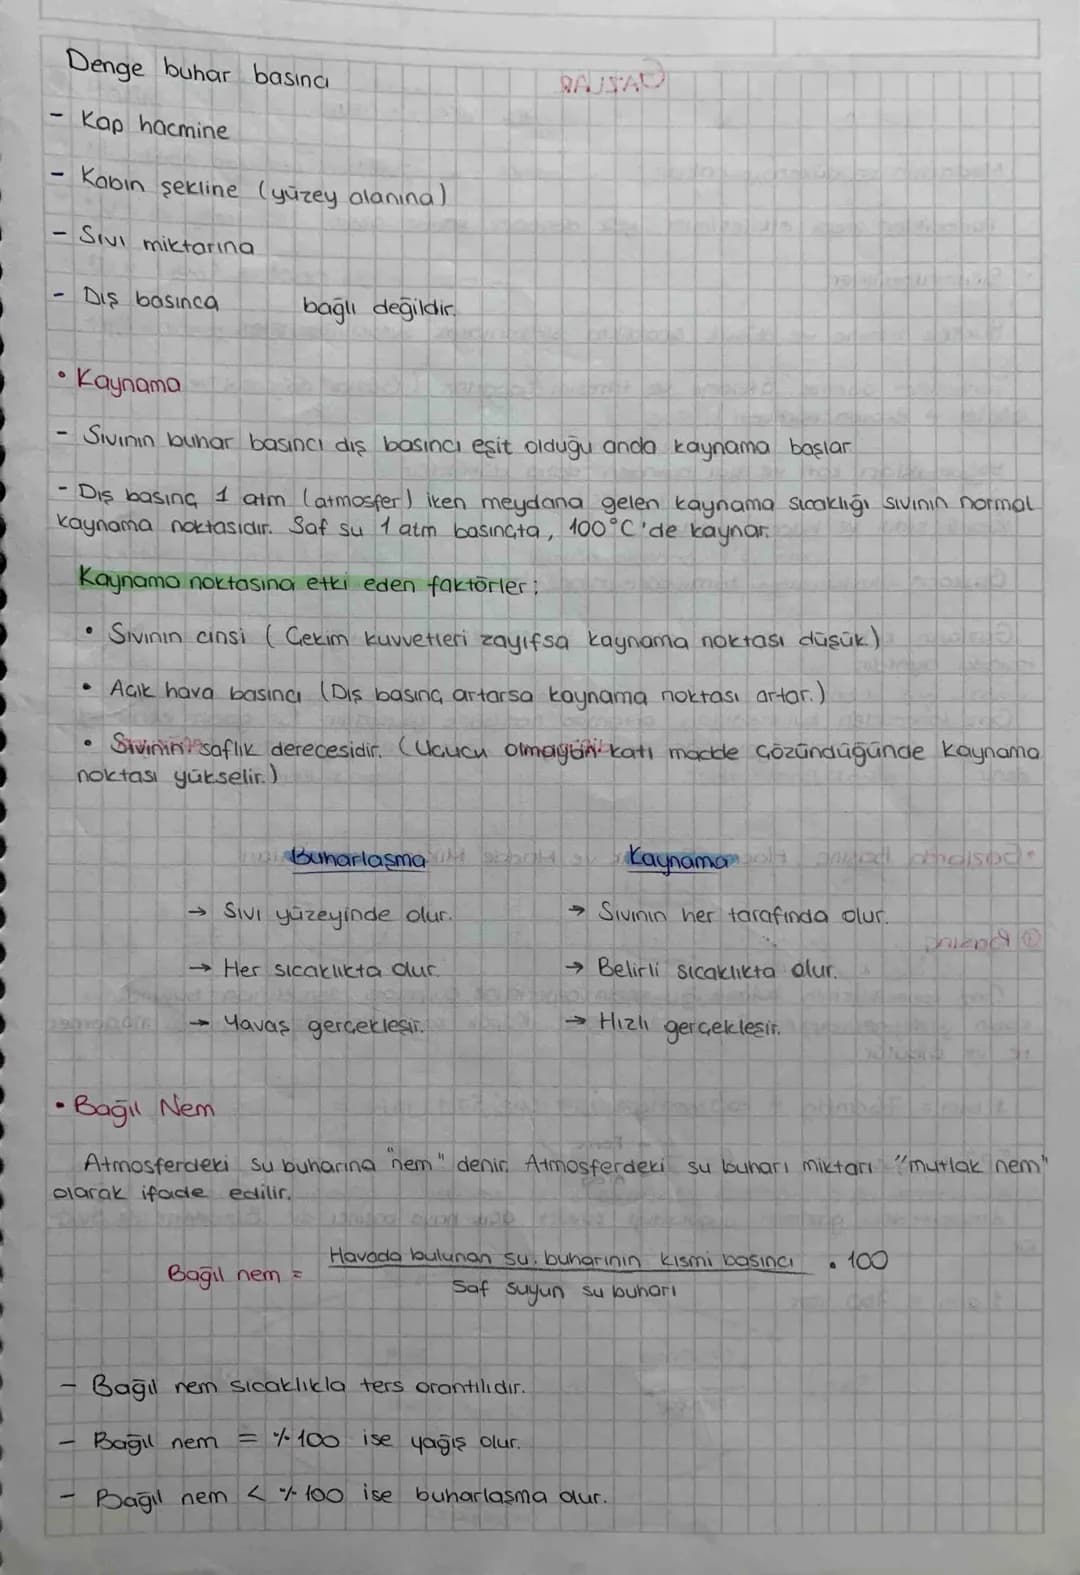 Denge buhar basıncı
- Kap hacmine
- Kabın şekline (yüzey alanına)
- Sıvı miktarına
- Dış basınca bağlı değildir.
• Kaynama
- Sıvının buhar basıncı dış basıncı eşit olduğu anda kaynama başlar
- Dış basınç 1 atm (atmosfer) iken meydana gelen kaynama sıcaklığı sıvının normal
kaynama noktasıdır. Saf su 1 atm basınçta, 100°C'de kaynar.
Kaynama noktasına etki eden faktörler:
• Sıvının cinsi (Çekim kuvvetleri zayıfsa kaynama noktası düşük)
• Açık hava basıncı (Dış basınç artarsa kaynama noktası artar.)
• Sıvının saflık derecesidir. (Uçucu olmayan katı madde çözündüğünde kaynama
noktası yükselir.)
Buharlaşma Kaynama
→ Sıvı yüzeyinde olur. → Sıvının her tarafında olur.
→ Her sıcaklıkta olur. → Belirli sıcaklıkta olur.
→ Yavaş gerçekleşir. → Hızlı gerçekleşir.
• Bağıl Nem
Atmosferdeki su buharına "nem" denir. Atmosferdeki su buharı miktarı "mutlak nem"
olarak ifade edilir.
Havada bulunan su buharının kısmi basıncı
Bağıl nem = . 100
Saf suyun su buharı
- Bağıl nem sıcaklıkla ters orantılıdır.
- Bağıl nem = %100 ise yağış olur.
- Bağıl nem < %100 ise buharlaşma olur.